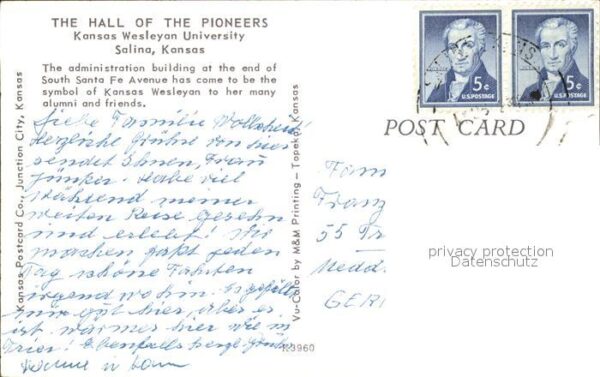 THE HALL OF THE PIONEERS
Kansas Wesleyan University
Salina, Kansas
The administration building at the end of
South Santa Fe Avenue has come to be the
symbol of Kansas Wesleyan to her many
alumni and friends.
Liebe Familie
Herzliche Grüße von hier
sendet Ihnen, Frau
Jünker. Habe viel
während meiner
weiten Reise gesehn
und erlebt! Wir
machen fast jeden
Tag schöne Fahrten
irgend wohin. Es gefällt
mir gut hier, aber es
ist wärmer hier wie in
Trier! Ebenfalls herzl. Grüße
Kansas Postcard Co., Junction City, Kansas
Vu-Color by M&M Printing - Topeka, Kansas
K3960
5¢
U.S. POSTAGE
5¢
U.S. POSTAGE
POST CARD
Fam
Franz
55 Tr
GER
privacy protection
Datenschutz